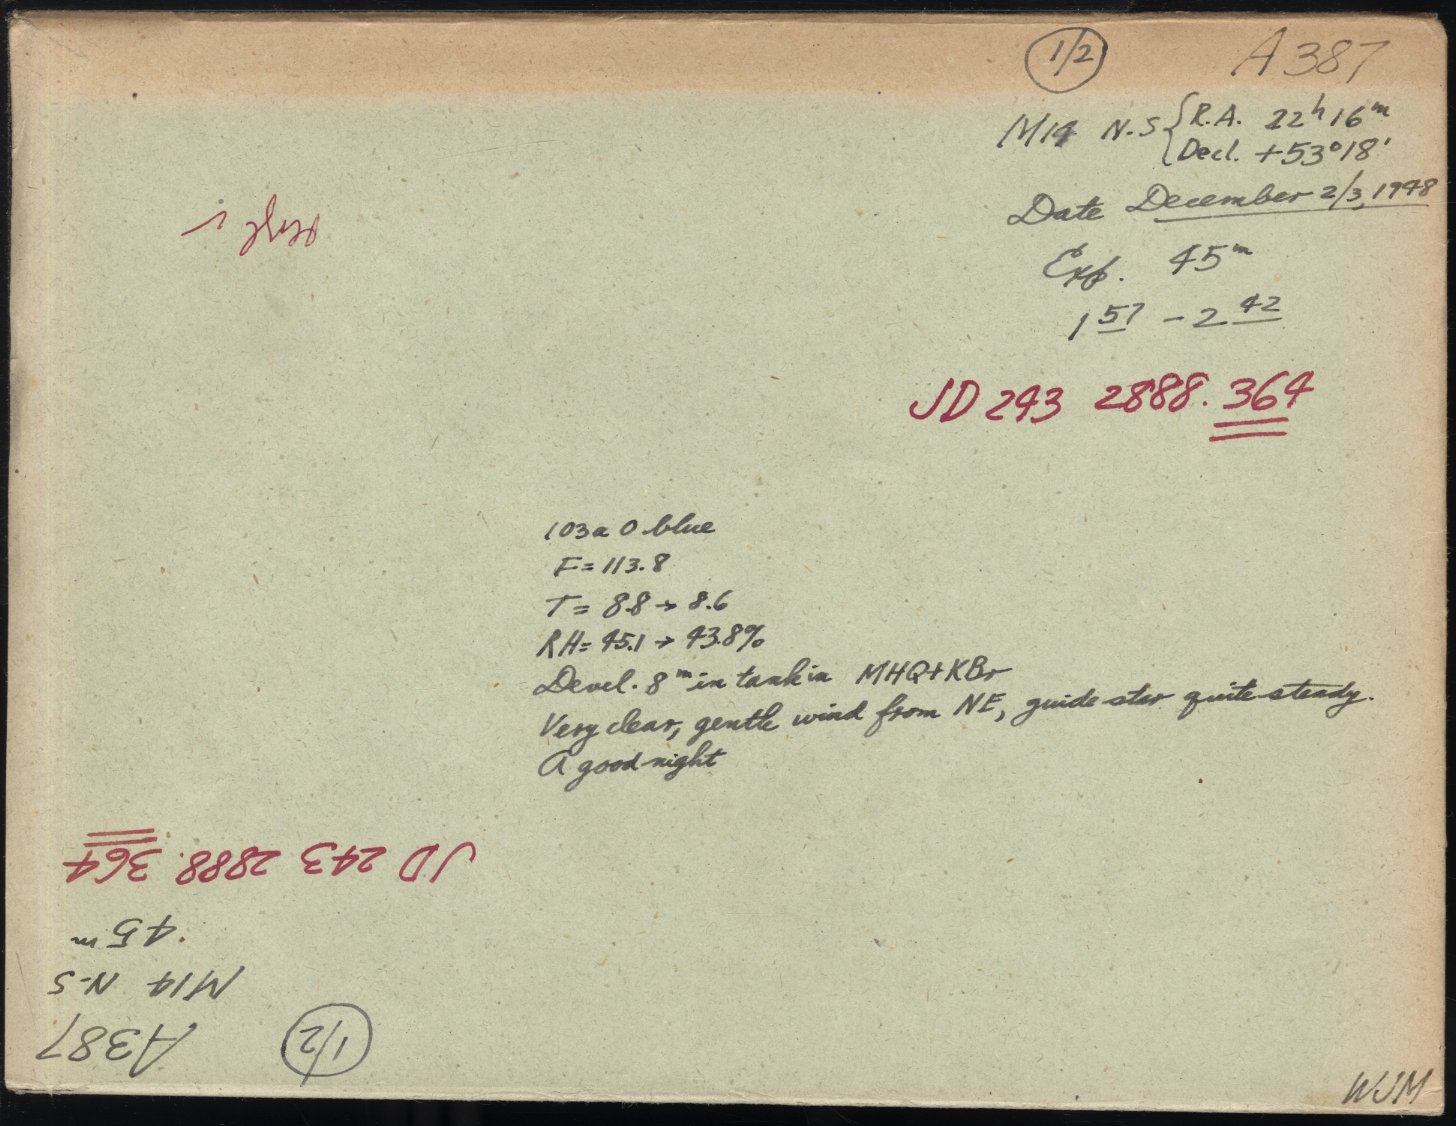 1/2 A387
M14 N-S { R.A. 22h 16m
Decl. +53°18'
Date December 2/3, 1948
Exp. 45m
1 57 - 2 42
JD 243 2888. 364
103a O blue
F = 113.8
T = 8.8 → 8.6
RH = 45.1 → 43.8%
Devel. 8m in tank in MHQ+KBr
Very clear, gentle wind from NE, guide star quite steady.
A good night
JD 243 2888. 364
45m
M14 N-S
A387 1/2
WJM